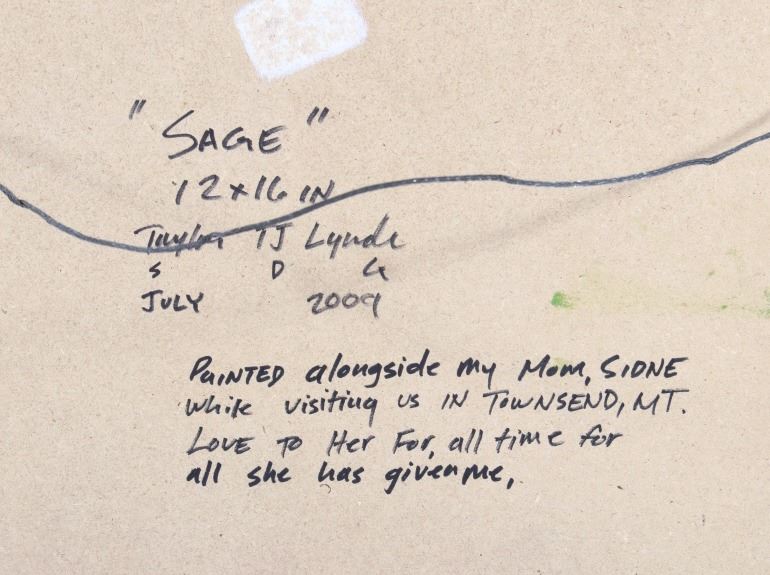 "SAGE"
12x16 IN
Taylor TJ Lynde
S D G
JULY 2009
PAINTED alongside my Mom, SIDNE
while visiting us IN TOWNSEND, MT.
LOVE TO Her For, all time for
all she has given me,